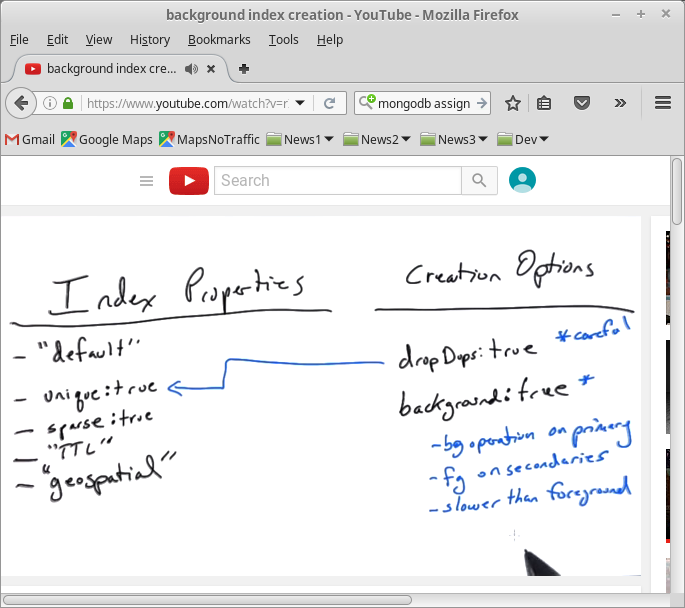 background index creation - YouTube - Mozilla Firefox
File Edit View History Bookmarks Tools Help
background index cre...
https://www.youtube.com/watch?v=r
mongodb assign
Gmail Google Maps MapsNoTraffic News1 News2 News3 Dev
Search
Index Properties
- "default"
- unique:true
- sparse:true
- "TTL"
- "geospatial"
Creation Options
dropDups:true *careful
background:true *
- bg operation on primary
- fg on secondaries
- slower than foreground